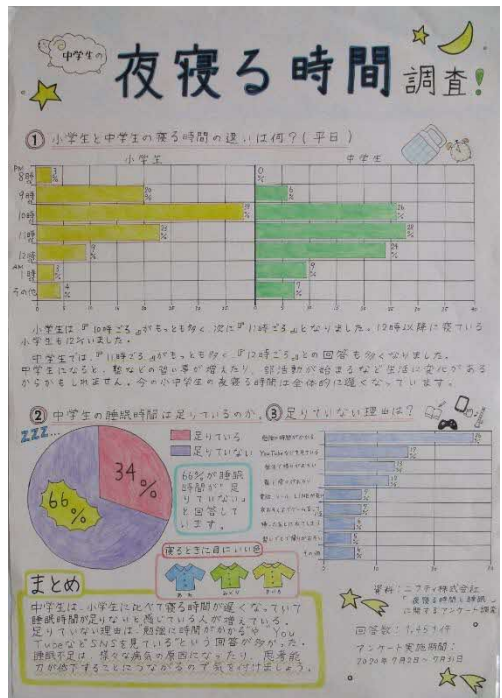 中学生の
夜寝る時間調査!
① 小学生と中学生の寝る時間の違いは何?(平日)
小学生
中学生
PM
8時
9時
10時
11時
12時
AM
1時
その他
3%
20%
23%
9%
3%
4%
0%
6%
26%
28%
24%
9%
7%
小学生は、『10時ごろ』がもっとも多く、次に『11時ごろ』となりました。12時以降に寝ている
小学生も12%いました。
中学生では、『11時ごろ』がもっとも多く、『12時ごろ』との回答も多くなりました。
中学生になると、塾などの習い事が増えたり、部活動が始まるなど生活に変化がある
からかもしれません。今の小中学生の夜寝る時間は全体的に遅くなっています。
② 中学生の睡眠時間は足りているのか。
ZZZ...
足りている
足りていない
34%
66%
66%が睡眠
時間が「足
りていない」
と回答して
います。
③ 足りない理由は?
勉強に時間がかかる
YouTubeなどを見ている
その他
寝るときに目にいい色
まとめ
中学生は、小学生に比べて寝る時間が遅くなっていて
睡眠時間が足りないと感じている人が増えている。
足りていない理由は"勉強に時間がかかる"や"You
TubeなどSNSを見ている"という回答が多かった。
睡眠不足は、様々な病気の原因になったり、思考能
力が低下することにつながるので気を付けましょう。
資料:ニフティ株式会社
「夜寝る時間と睡眠」
に関するアンケート調査
回答数:
アンケート実施時間:
2020年7月2日~7月31日